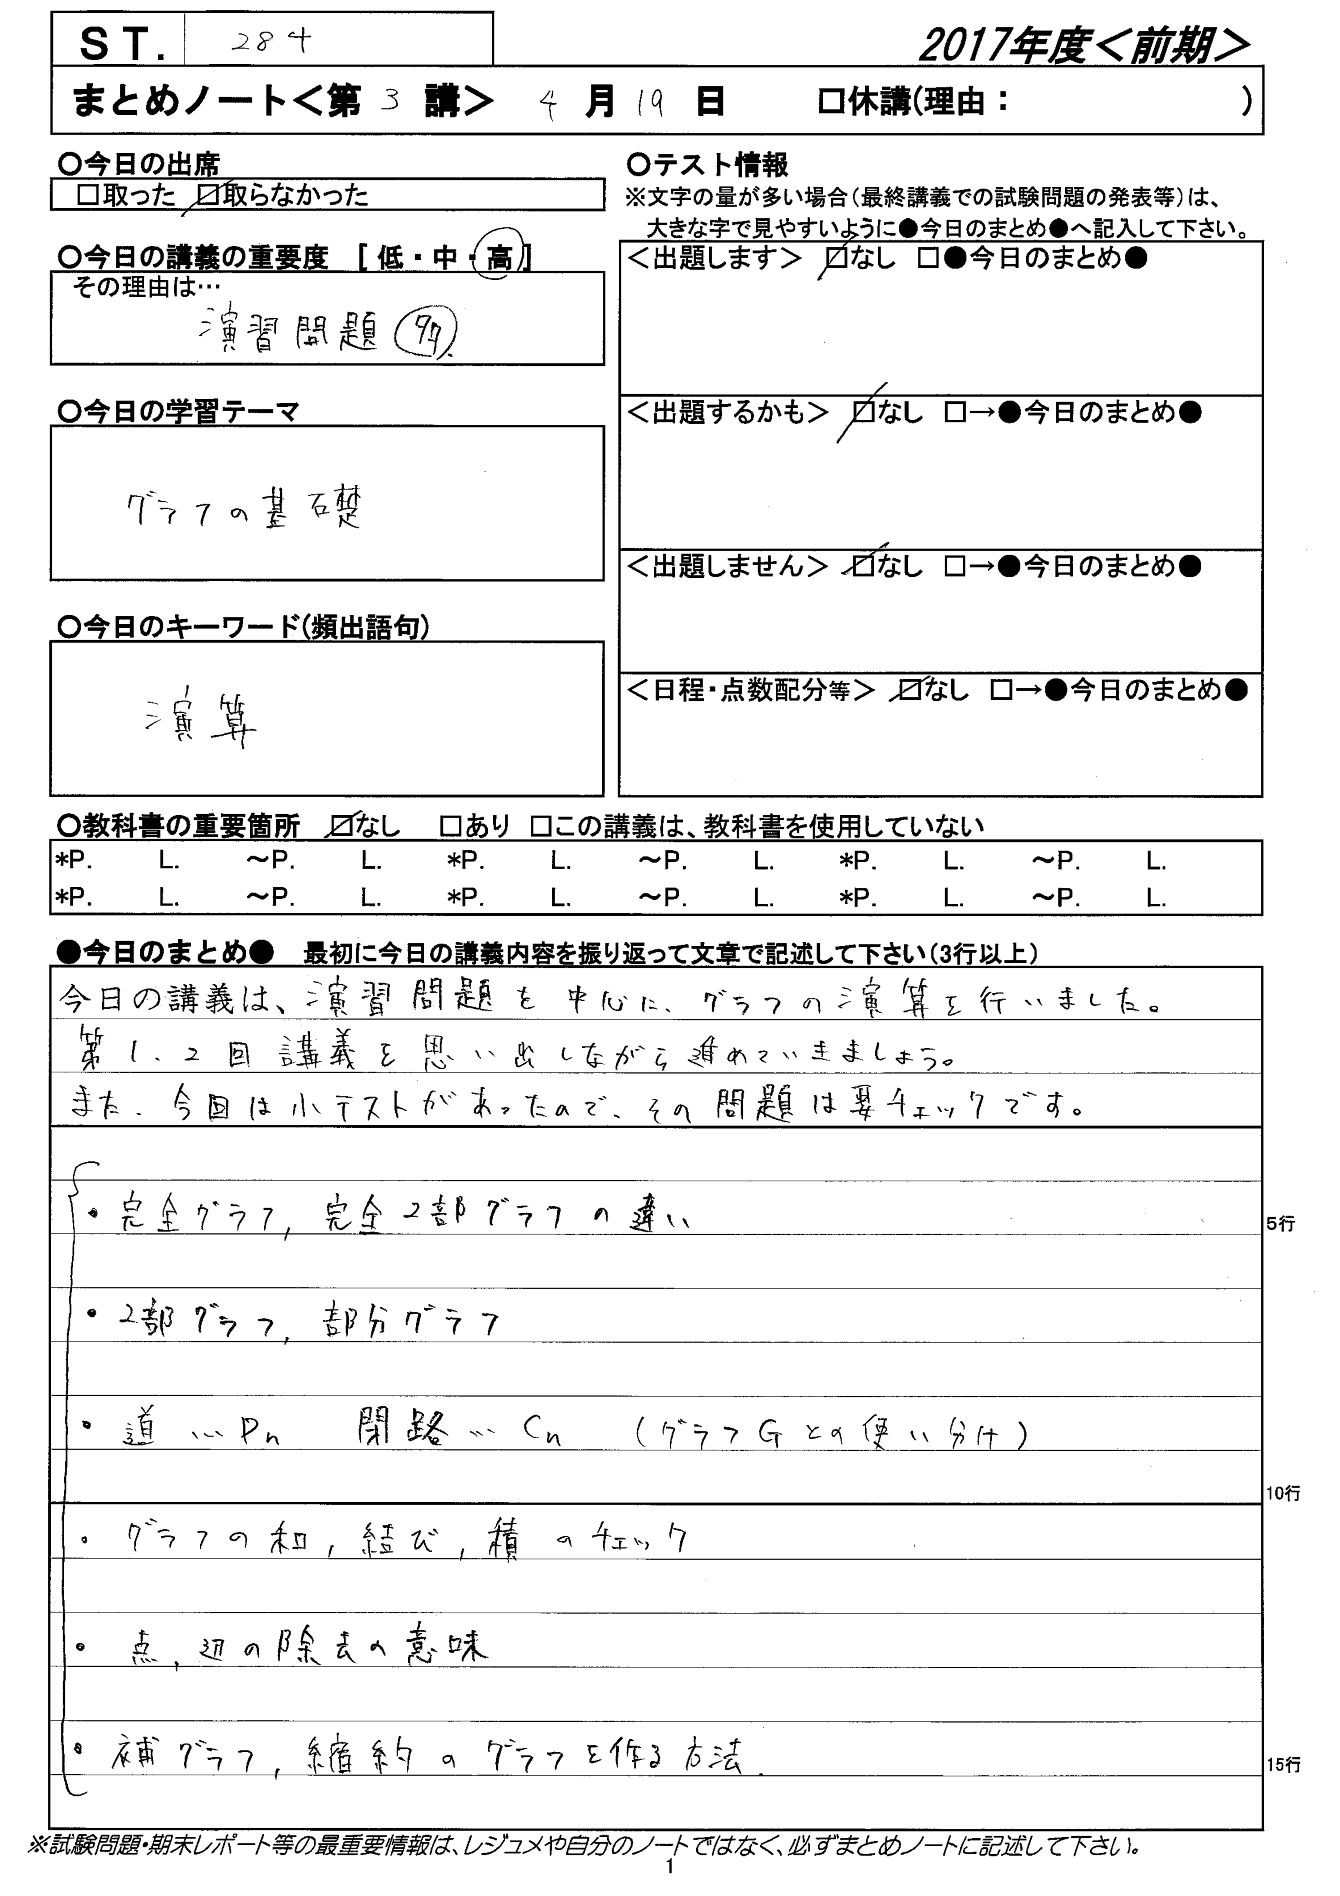 ST. 284
2017年度＜前期＞
まとめノート＜第 3 講＞ 4 月 19 日 □休講(理由： )
○今日の出席
□取った ☑取らなかった
○今日の講義の重要度 [ 低・中・高 ]
その理由は…
演習問題
○今日の学習テーマ
グラフの基礎
○今日のキーワード(頻出語句)
演算
○テスト情報
※文字の量が多い場合(最終講義での試験問題の発表等)は、
大きな字で見やすいように●今日のまとめ●へ記入して下さい。
＜出題します＞ ☑なし □●今日のまとめ●
＜出題するかも＞ ☑なし □→●今日のまとめ●
＜出題しません＞ ☑なし □→●今日のまとめ●
＜日程・点数配分等＞ ☑なし □→●今日のまとめ●
○教科書の重要箇所 ☑なし □あり □この講義は、教科書を使用していない
*P. L. ～P. L. *P. L. ～P. L. *P. L. ～P. L.
*P. L. ～P. L. *P. L. ～P. L. *P. L. ～P. L.
●今日のまとめ● 最初に今日の講義内容を振り返って文章で記述して下さい(3行以上)
今日の講義は、演習問題を中心に、グラフの演算を行いました。
第1、2回講義を思い出しながら進めていきましょう。
また、今回は小テストがあったので、その問題は要チェックです。
・完全グラフ, 完全2部グラフの違い
5行
・2部グラフ, 部分グラフ
・道 … Pn 閉路 … Cn (グラフGとの使い分け)
10行
・グラフの和, 結び, 積のチェック
・点, 辺の除去の意味
・補グラフ, 縮約のグラフを作る方法.
15行
※試験問題・期末レポート等の最重要情報は、レジュメや自分のノートではなく、必ずまとめノートに記述して下さい。
1